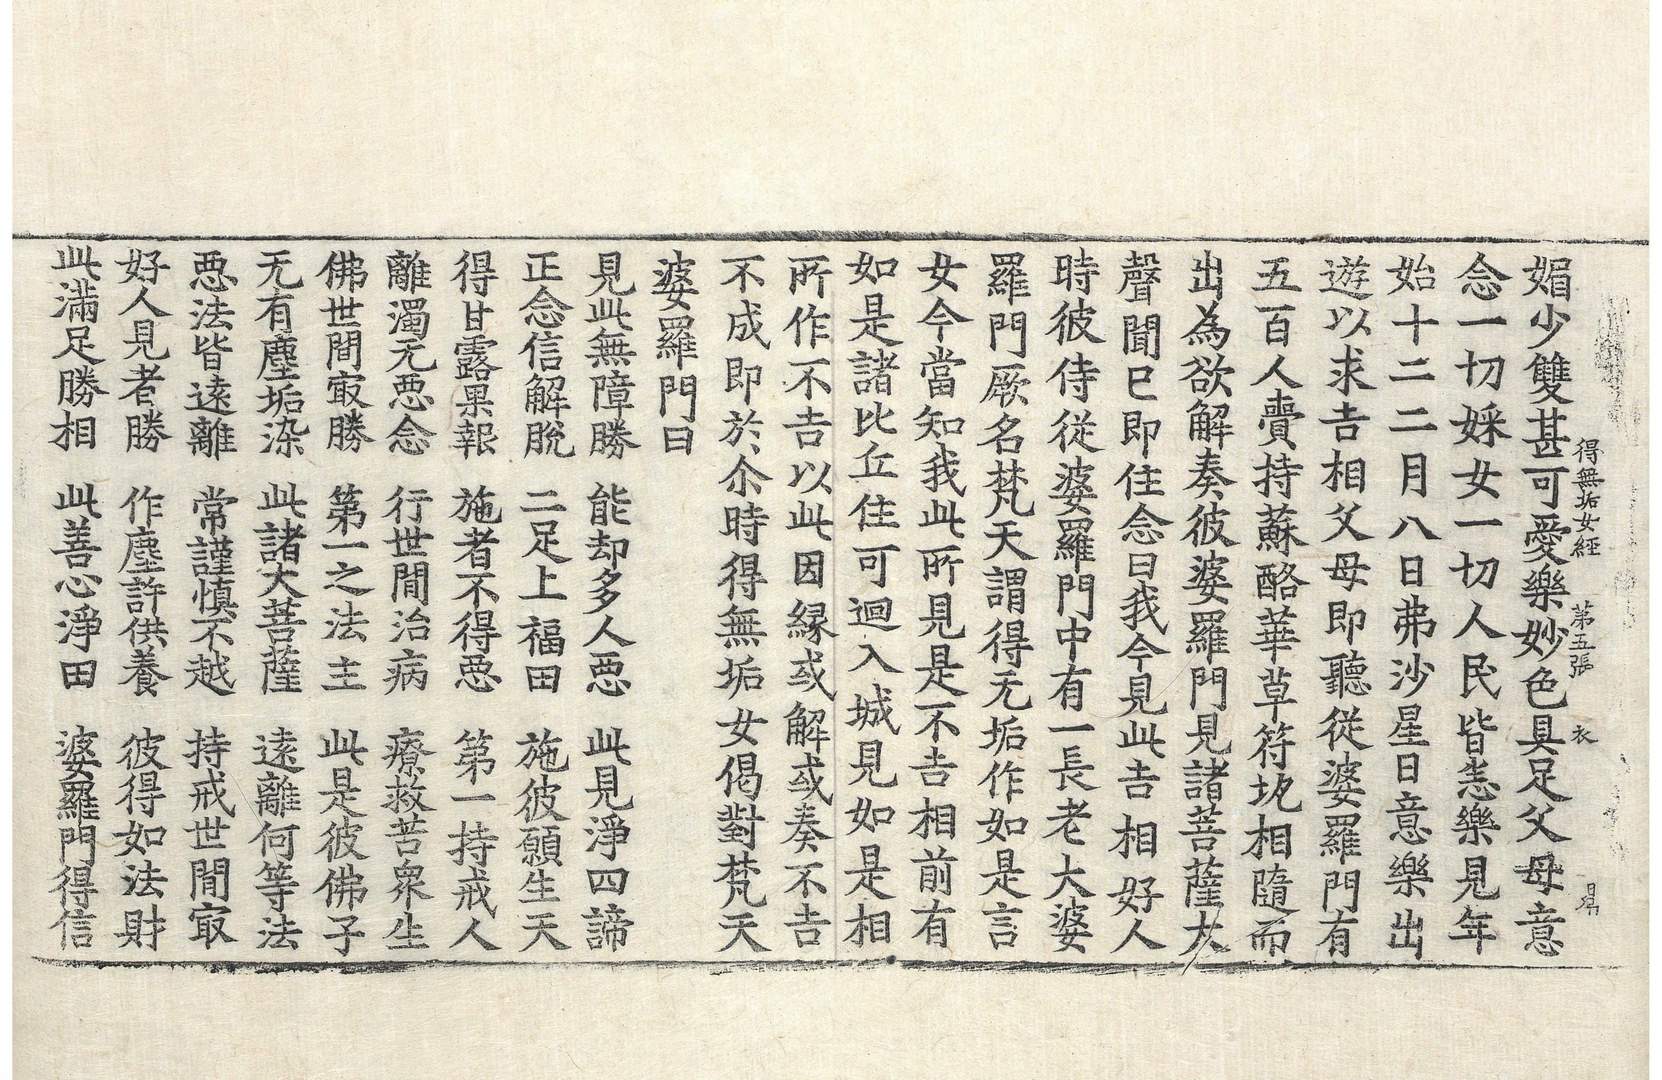 得無垢女經 第五張 衣
媚少雙甚可愛樂妙色具足父母意
念一切婇女一切人民皆悉樂見年
始十二二月八日弗沙星日意樂出
遊以求吉相父母即聽從婆羅門有
五百人賷持蘇酪華草符坈相隨而
出為欲解奏彼婆羅門見諸菩薩大
聲聞已即住念曰我今見此吉相好人
時彼侍從婆羅門中有一長老大婆
羅門厥名梵天謂得无垢作如是言
女今當知我此所見是不吉相前有
如是諸比丘住可迴入城見如是相
所作不吉以此因縁或解或奏不吉
不成即於尒時得無垢女偈對梵天
婆羅門曰
見此無障勝 能却多人惡 此見淨四諦
正念信解脫 二足上福田 施彼願生天
得甘露果報 施者不得惡 第一持戒人
離濁无惡念 行世間治病 療救苦衆生
佛世間㝡勝 第一之法主 此是彼佛子
无有塵垢染 此諸大菩薩 遠離何等法
惡法皆遠離 常謹慎不越 持戒世間㝡
好人見者勝 作塵許供養 彼得如法財
此滿足勝相 此善心淨田 婆羅門得信